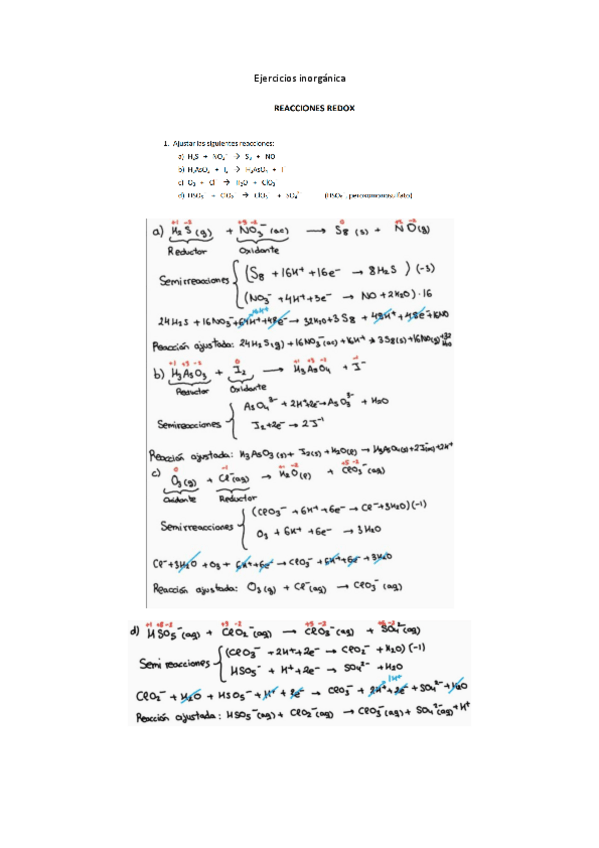 Ejercicios inorgánica
REACCIONES REDOX
1. Ajustar las siguientes reacciones:
a) H₂S + NO₃⁻ → S₈ + NO
b) H₃AsO₃ + I₂ → H₃AsO₄ + I⁻
c) O₃ + Cl⁻ → H₂O + ClO₃⁻
d) HSO₅⁻ + ClO₂⁻ → ClO₃⁻ + SO₄²⁻
+1 -2 +5 -2 0 +2 -2
a) H₂S(g) + NO₃⁻(ac) → S₈(s) + NO(g)
Reductor Oxidante
Semirreacciones
(S₈ + 16H⁺ + 16e⁻ → 8H₂S)(-3)
(NO₃⁻ + 4H⁺ + 3e⁻ → NO + 2H₂O)·16
16H⁺
24H₂S + 16NO₃⁻ + 64H⁺ + 48e⁻ → 32H₂O + 3S₈ + 48H⁺ + 48e⁻ + 16NO
Reacción ajustada: 24H₂S(g) + 16NO₃⁻(ac) + 16H⁺ → 3S₈(s) + 16NO(g) + 32H₂O
+1 +3 -2 0 +1 +5 -2 -1
b) H₃AsO₃ + I₂ → H₃AsO₄ + I⁻
Reductor Oxidante
Semirreacciones
AsO₄³⁻ + 2H⁺ + 2e⁻ → AsO₃³⁻ + H₂O
I₂ + 2e⁻ → 2I⁻¹
Reacción ajustada: H₃AsO₃(s) + I₂(s) + H₂O(l) → H₃AsO₄(s) + 2I⁻(ac) + 2H⁺
0 -1 +1 -2 +5 -2
c) O₃(g) + Cl⁻(ag) → H₂O(l) + ClO₃⁻(ag)
Oxidante Reductor
Semirreacciones
(ClO₃⁻ + 6H⁺ + 6e⁻ → Cl⁻ + 3H₂O)(-1)
O₃ + 6H⁺ + 6e⁻ → 3H₂O
Cl⁻ + 3H₂O + O₃ + 6H⁺ + 6e⁻ → ClO₃⁻ + 6H⁺ + 6e⁻ + 3H₂O
Reacción ajustada: O₃(g) + Cl⁻(ag) → ClO₃⁻(ag)
+1 +8 -2 +3 -2 +5 -2 +6 -2
d) HSO₅⁻(ag) + ClO₂⁻(ag) → ClO₃⁻(ag) + SO₄²⁻(ag)
Semirreacciones
(ClO₃⁻ + 2H⁺ + 2e⁻ → ClO₂⁻ + H₂O)(-1)
HSO₅⁻ + H⁺ + 2e⁻ → SO₄²⁻ + H₂O
1H⁺
ClO₂⁻ + H₂O + HSO₅⁻ + H⁺ + 2e⁻ → ClO₃⁻ + 2H⁺ + 2e⁻ + SO₄²⁻ + H₂O
Reacción ajustada: HSO₅⁻(ag) + ClO₂⁻(ag) → ClO₃⁻(ag) + SO₄²⁻(ag) + H⁺